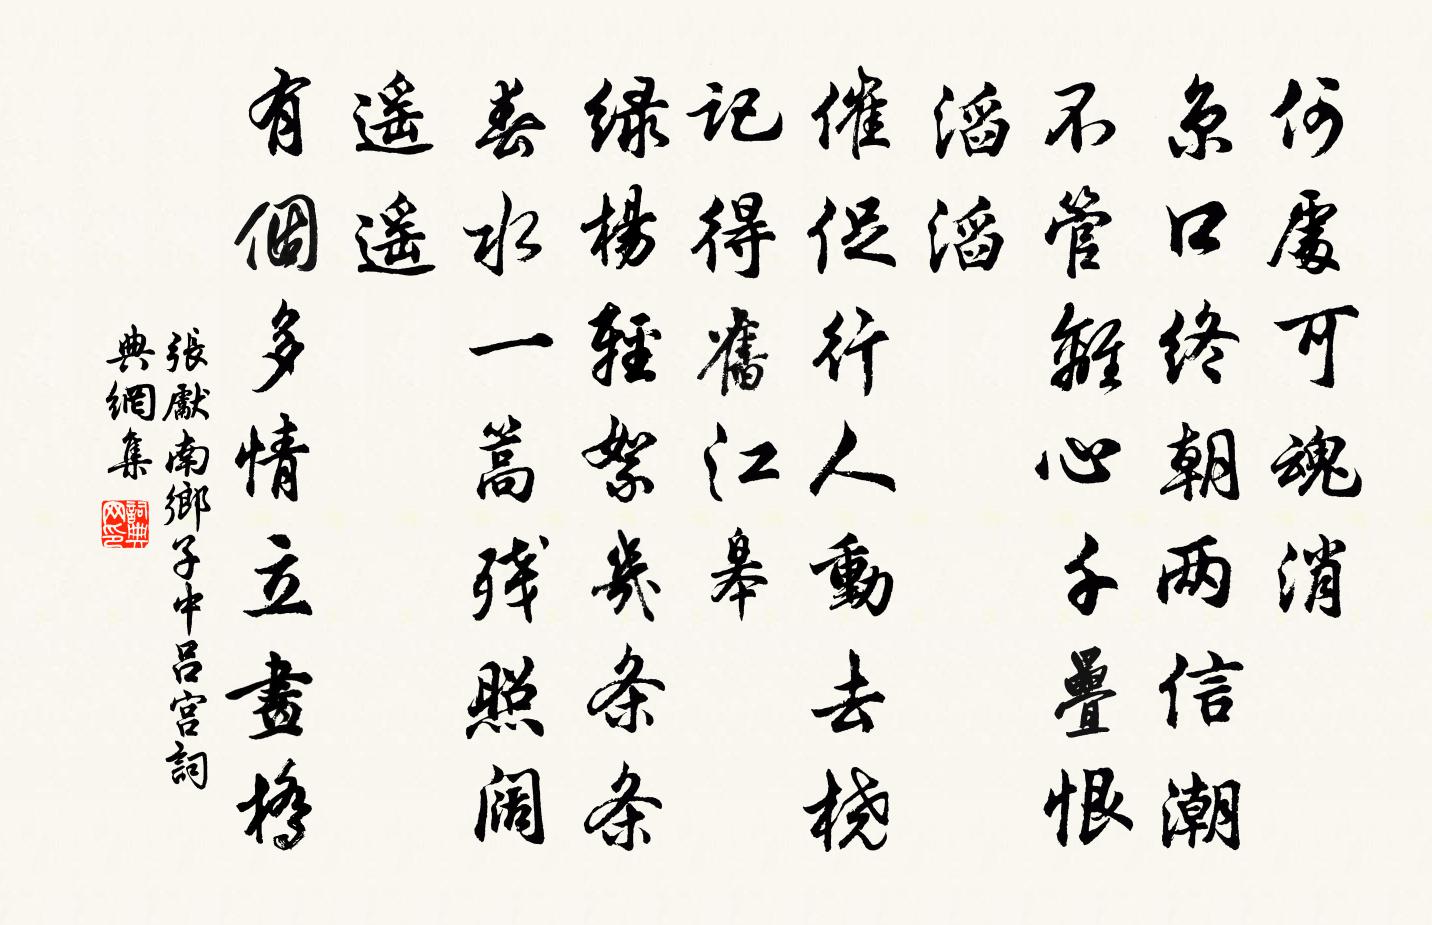 何處可魂消
京口终朝兩信潮
不管離心千疊恨
滔滔
催促行人動去桡
記得舊江皋
绿楊輕絮幾条条
春水一篙残照阔
遥遥
有個多情立畫橋
張獻南鄉子中呂宮詞
典網集
詞典
网印